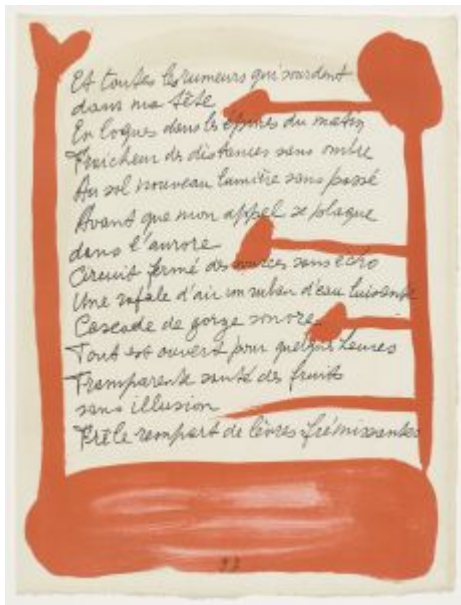 Et toutes les rumeurs qui sourdent
dans ma tête
En loques dans les épines du matin
Fraîcheur des distances sans ombre
Au sol nouveau lumière sans passé
Avant que mon appel se plaque
dans l'aurore
Circuit fermé des sources sans écho
Une rafale d'air un ruban d'eau luisante
Cascade de gorge sonore
Tout est ouvert pour quelques heures
Transparente santé des fruits
sans illusion
Frêle rempart de lèvres frémissantes